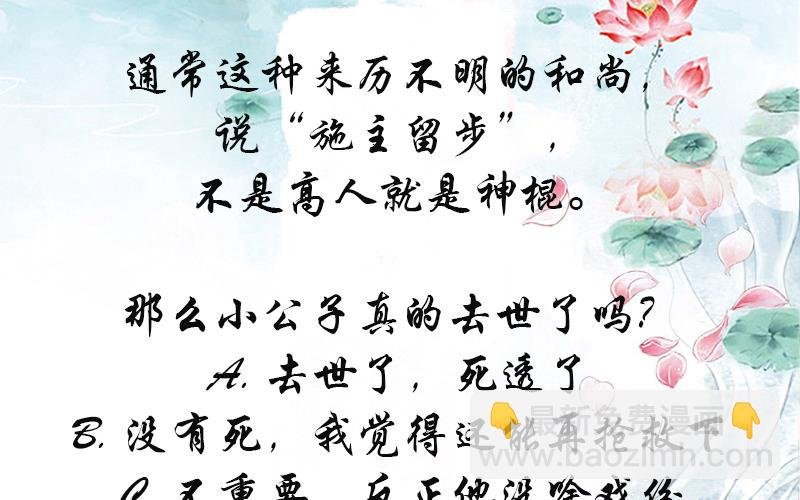 通常这种来历不明的和尚，
说“施主留步”，
不是高人就是神棍。
那么小公子真的去世了吗？
A. 去世了，死透了
B. 没有死，我觉得还能再抢救下
最新免费漫画
www.baozimh.com
C. 不重要，反正他没啥戏份